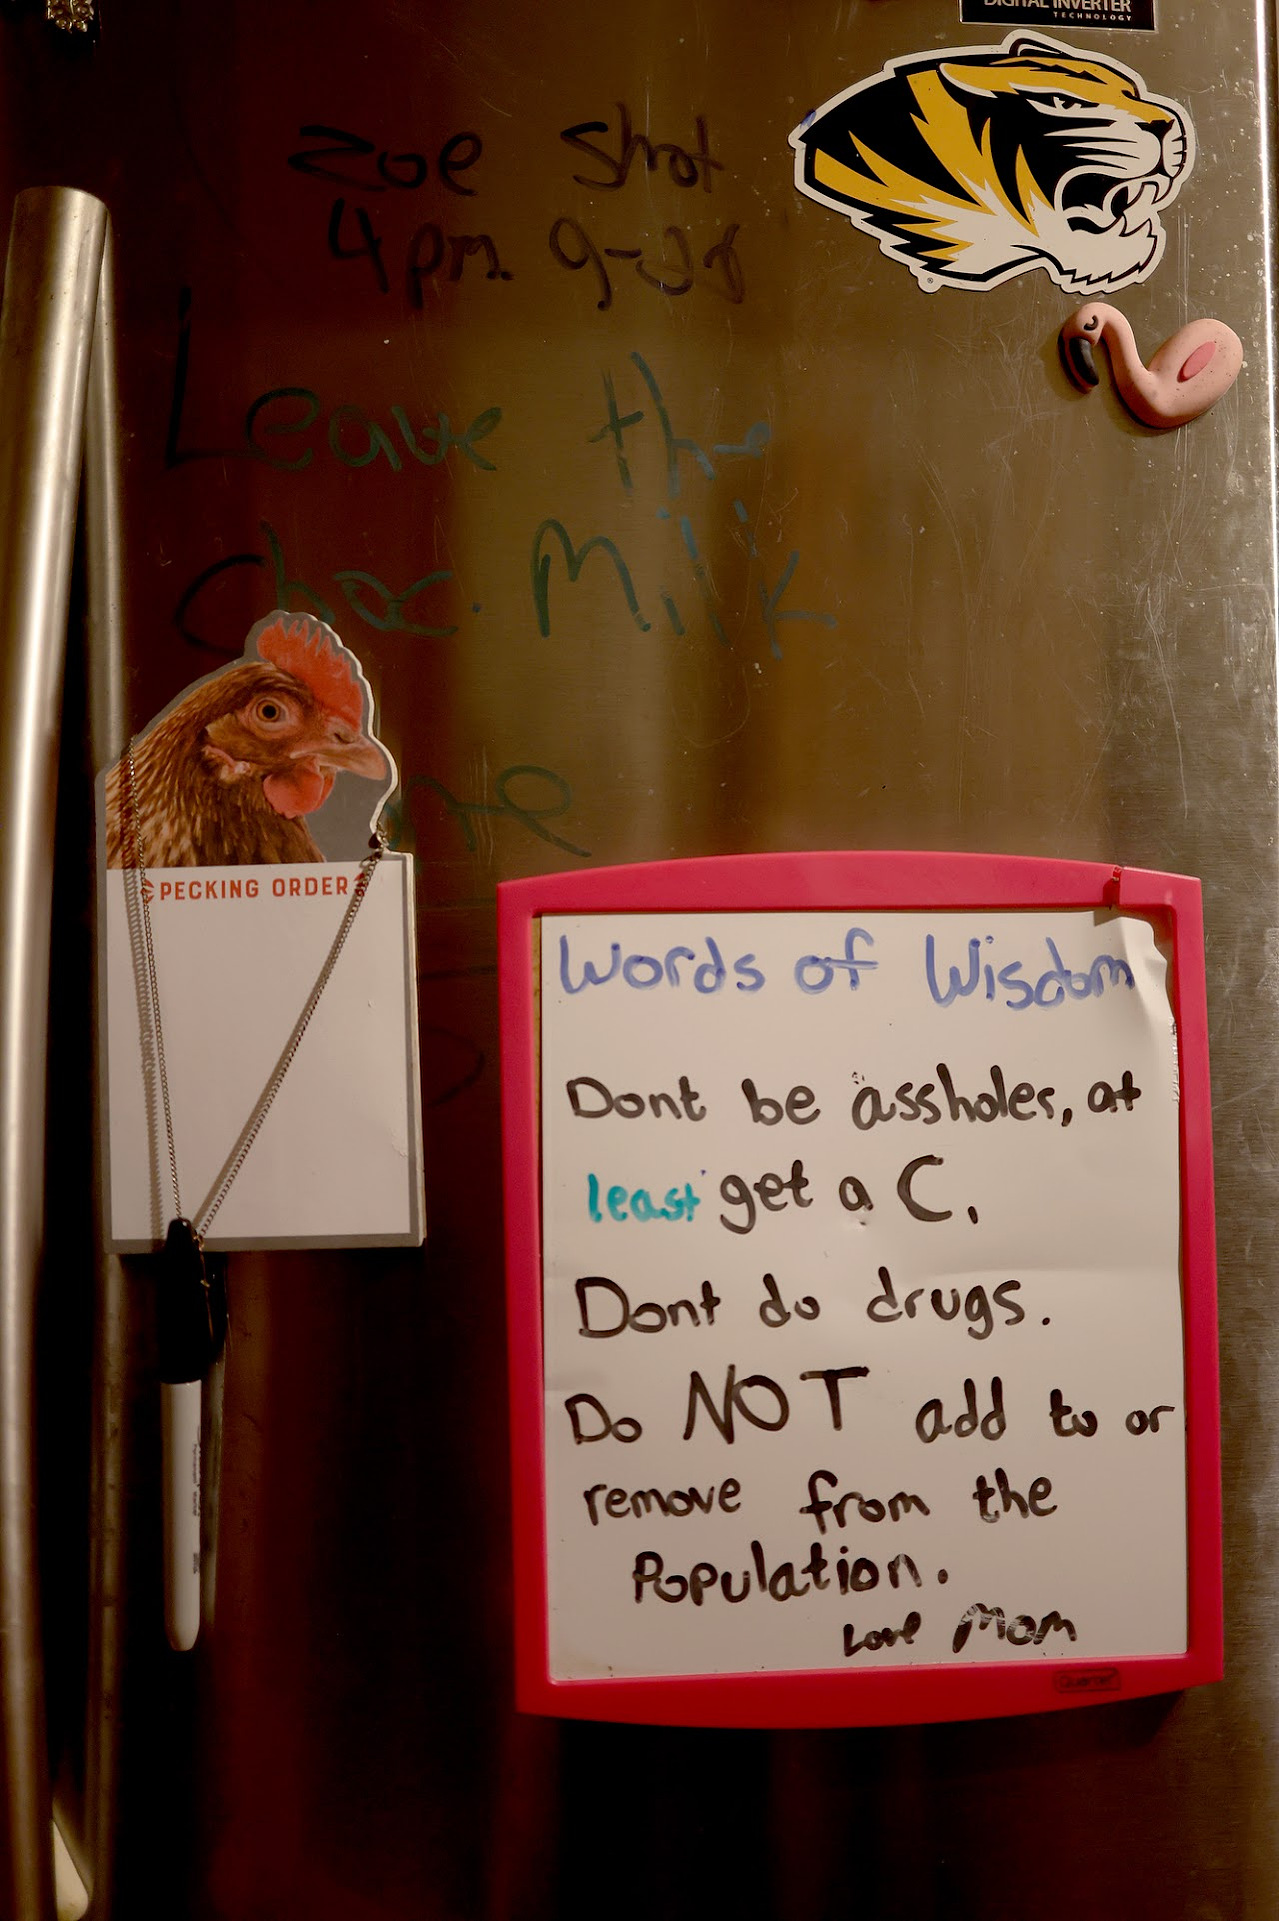 DIGITAL INVERTER
TECHNOLOGY
Zoe Shot
4pm. 9-28
Leave the
choc. Milk
PECKING ORDER
Words of Wisdom
Dont be assholes, at
least get a C.
Dont do drugs.
Do NOT add to or
remove from the
Population.
Love Mom
Quartet